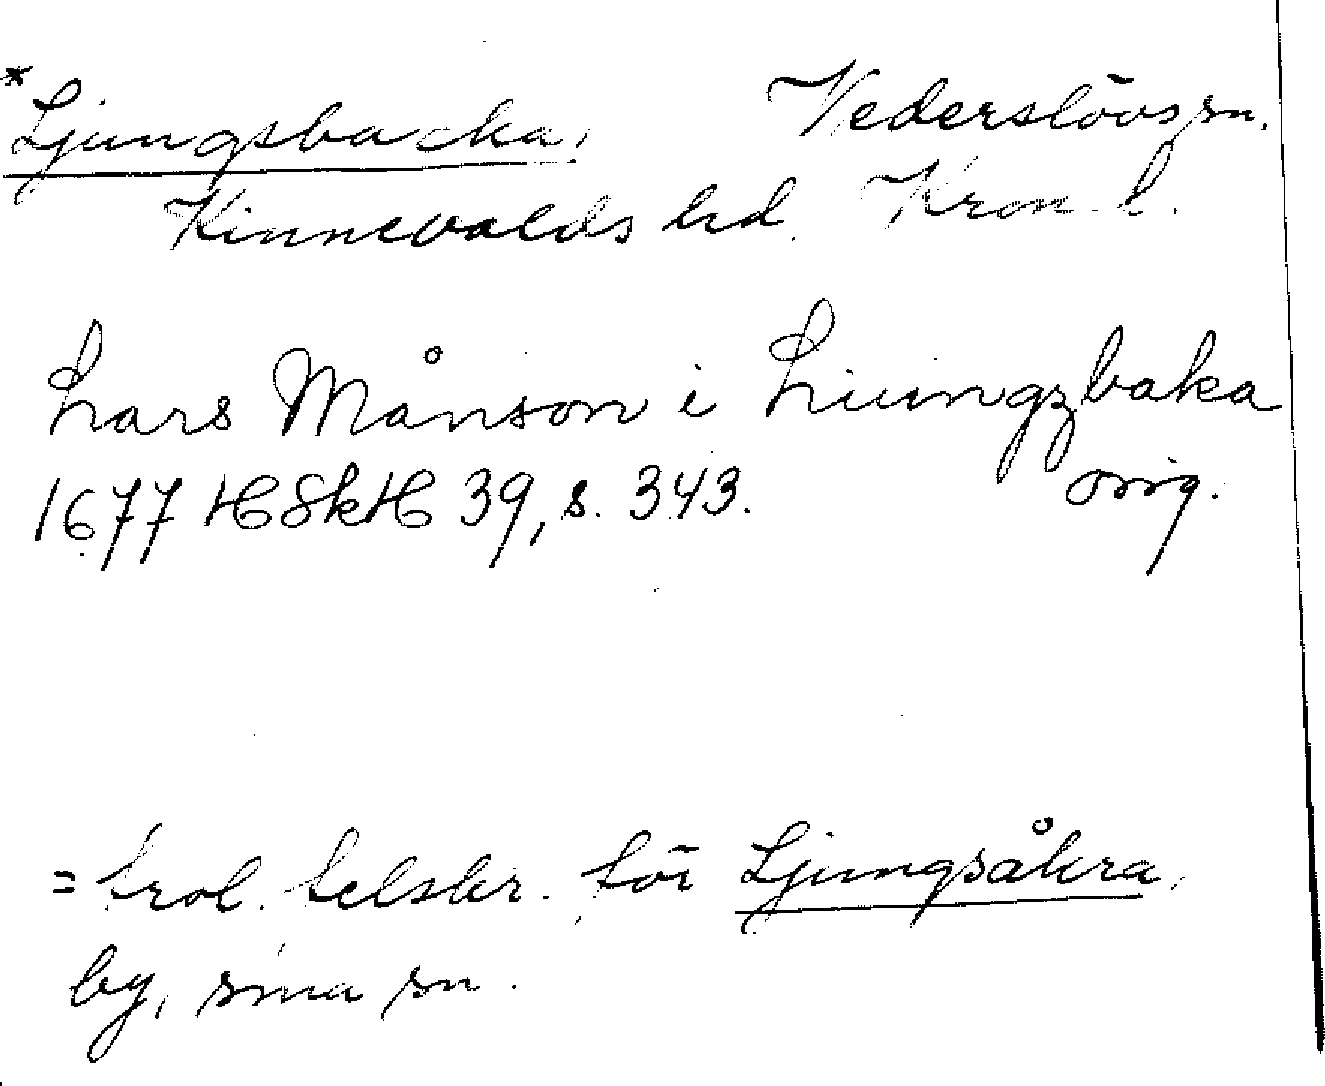 *Ljungsbacka, Vederslövs sn.
Kinnevalds hd. Kron. l.
Lars Månson i Liungzbaka
1677 HSkH 39, s. 343. orig.
= trol. felskr. för Ljungsåkra,
by, sma sn.